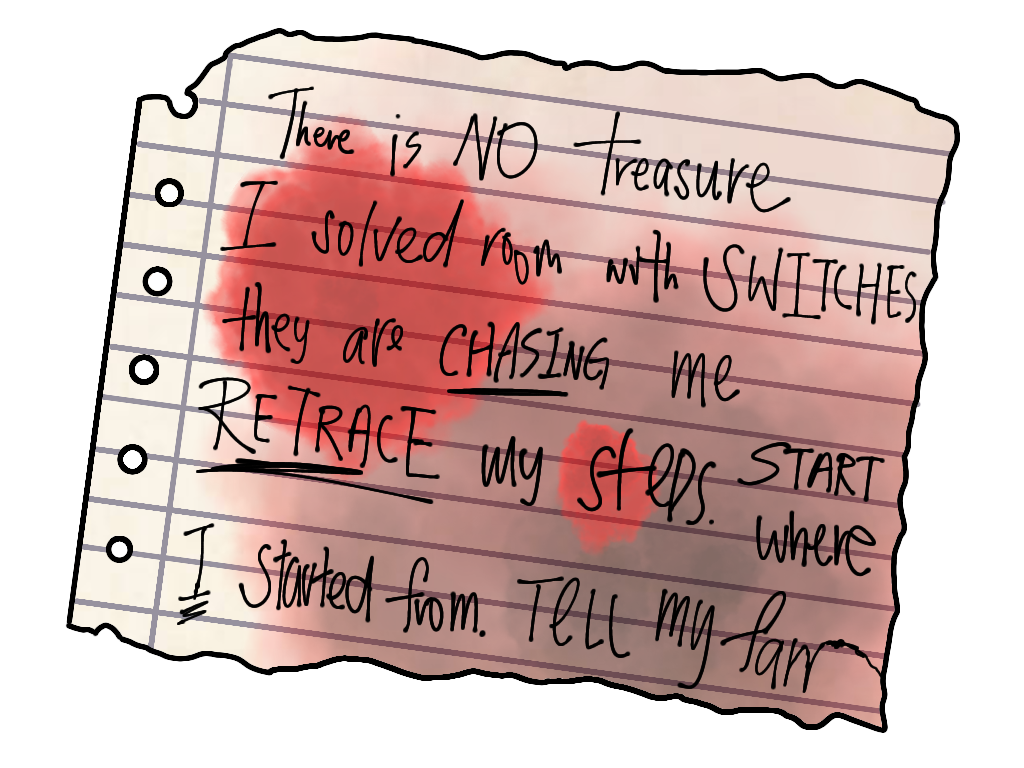 There is NO treasure
I solved room with SWITCHES
they are CHASING me
RETRACE my steps. START
where
I started from. TELL my